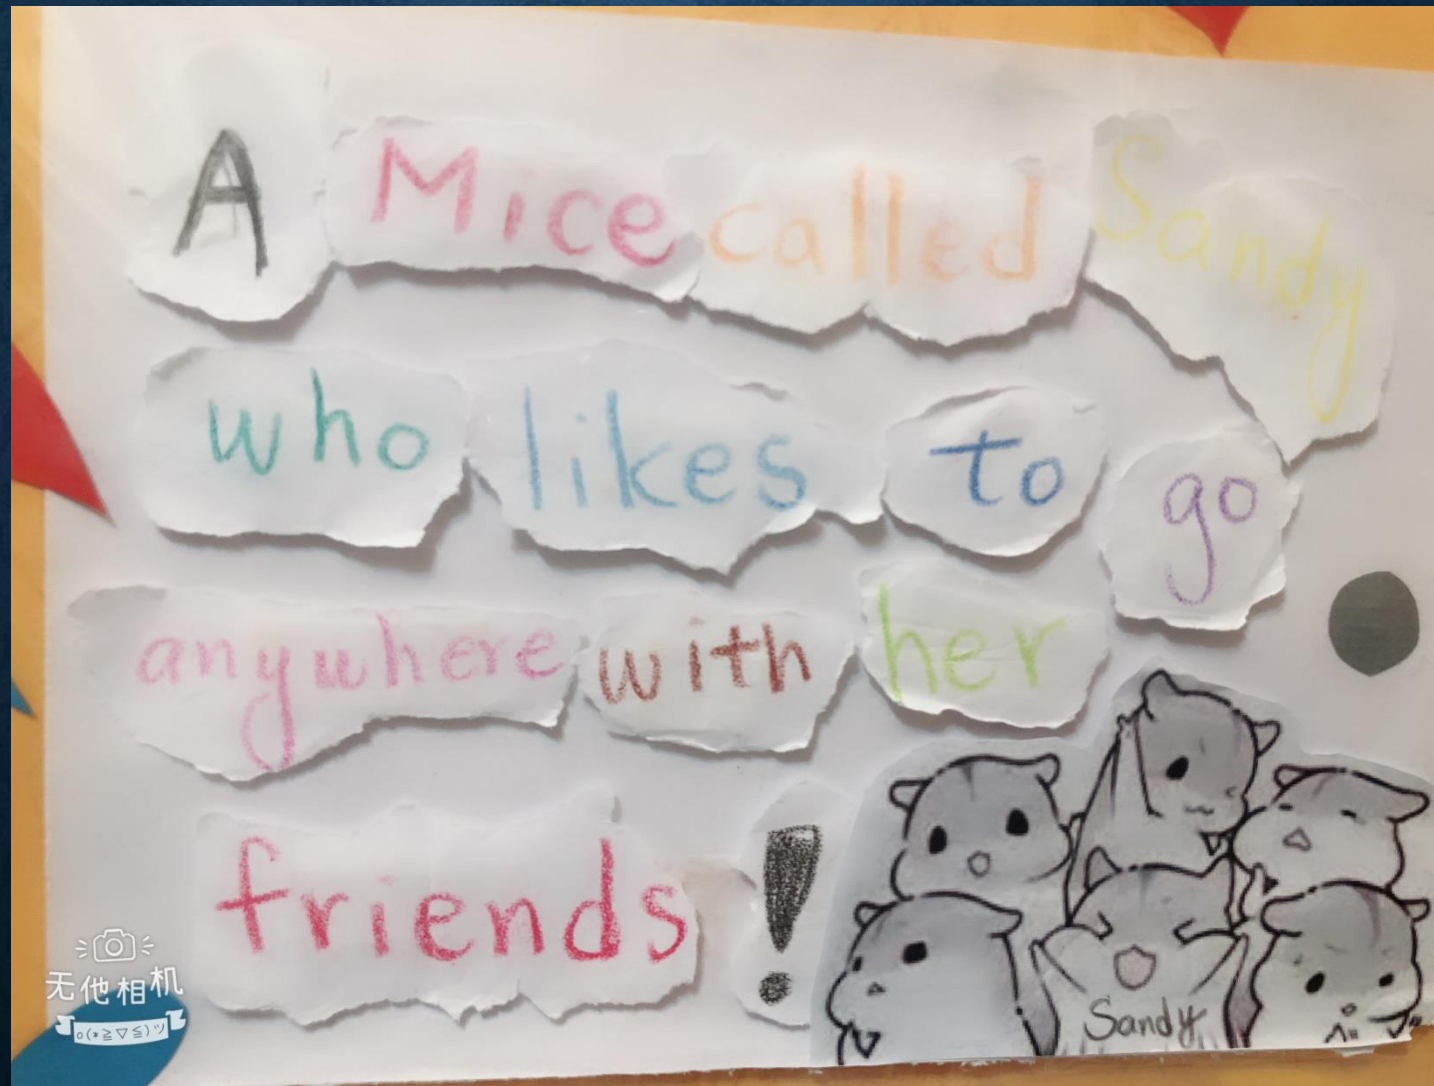 A Mice called Sandy
who likes to go
anywhere with her
friends!
Sandy
无他相机
o(*≧▽≦)ツ